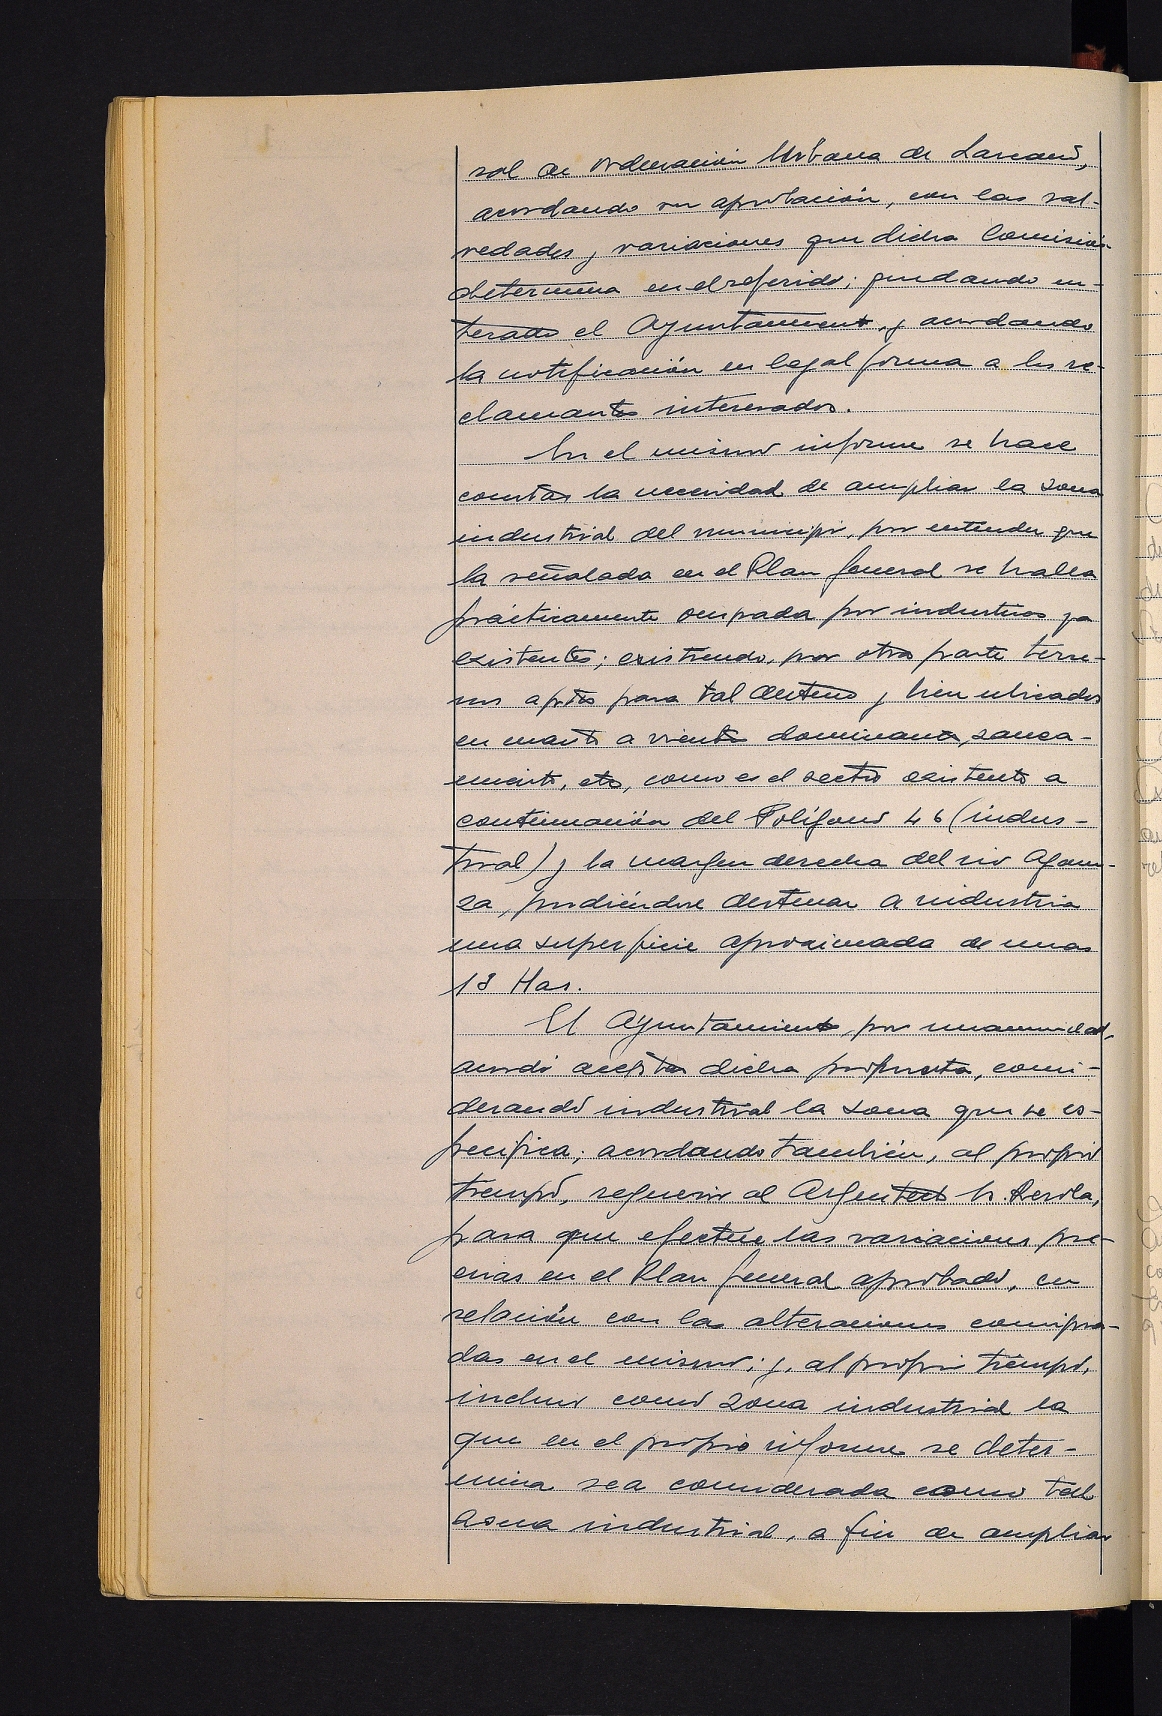 ral de Ordenación Urbana de Lazcano,
acordando su aprobación, con las sal-
vedades y variaciones que dicha Comisión
determina en el referido; quedando en-
terado el Ayuntamiento, y acordando
la notificación en legal forma a los re-
clamantes interesados.
En el mismo informe se hace
constar la necesidad de ampliar la zona
industrial del municipio, por entender que
la señalada en el Plan General se halla
prácticamente ocupada por industrias ya
existentes; existiendo, por otra parte terre-
nos aptos para tal destino y bien ubicados
en cuanto a viento dominante, sanea-
miento, etc, como es el sector existente a
continuación del Polígono 46 (indus-
trial) y la margen derecha del rio Agaun-
za, pudiéndose destinar a industria
una superficie aproximada de unas
13 Has.
El Ayuntamiento, por unanimidad,
acordó aceptar dicha propuesta, consi-
derando industrial la zona que se es-
pecifica; acordando también, al propio
tiempo, requerir al Sr.
para que efectúe las variaciones pre-
cisas en el Plan General aprobado, en
relación con las alteraciones
das en el mismo; y, al propio tiempo,
incluir como zona industrial la
que en el propio informe se deter-
mina sea considerada como tal
zona industrial, a fin de ampliar